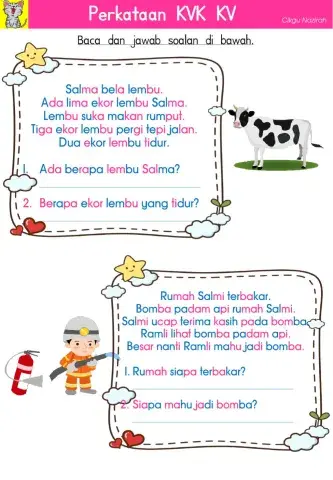 Perkataan KVK KV
Cikgu Nazirah
Baca dan jawab soalan di bawah.
Salma bela lembu.
Ada lima ekor lembu Salma.
Lembu suka makan rumput.
Tiga ekor lembu pergi tepi jalan.
Dua ekor lembu tidur.
1. Ada berapa lembu Salma?
2. Berapa ekor lembu yang tidur?
Rumah Salmi terbakar.
Bomba padam api rumah Salmi.
Salmi ucap terima kasih pada bomba.
Ramli lihat bomba padam api.
Besar nanti Ramli mahu jadi bomba.
1. Rumah siapa terbakar?
2. Siapa mahu jadi bomba?